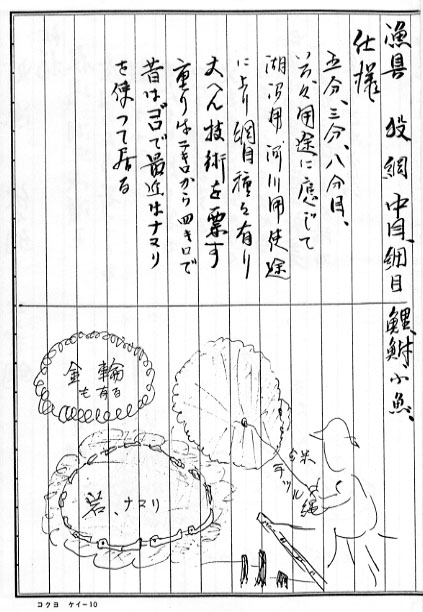 漁具 投網 中目、細目 鯉鮒小魚、
仕様
五分、三分、八分目、
其々用途に應じて
湖沼用河川用使途
により網目種々有り
大へん技術を要す
重りは二キロから四キロで
昔はゴロで最近はナマリ
を使って居る
金輪
も有る
岩、ナマリ
コクヨ ケイー10